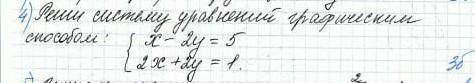 4) Реши систему уравнений графическим
способом: { x - 2y = 5
2x + 2y = 1.
3б